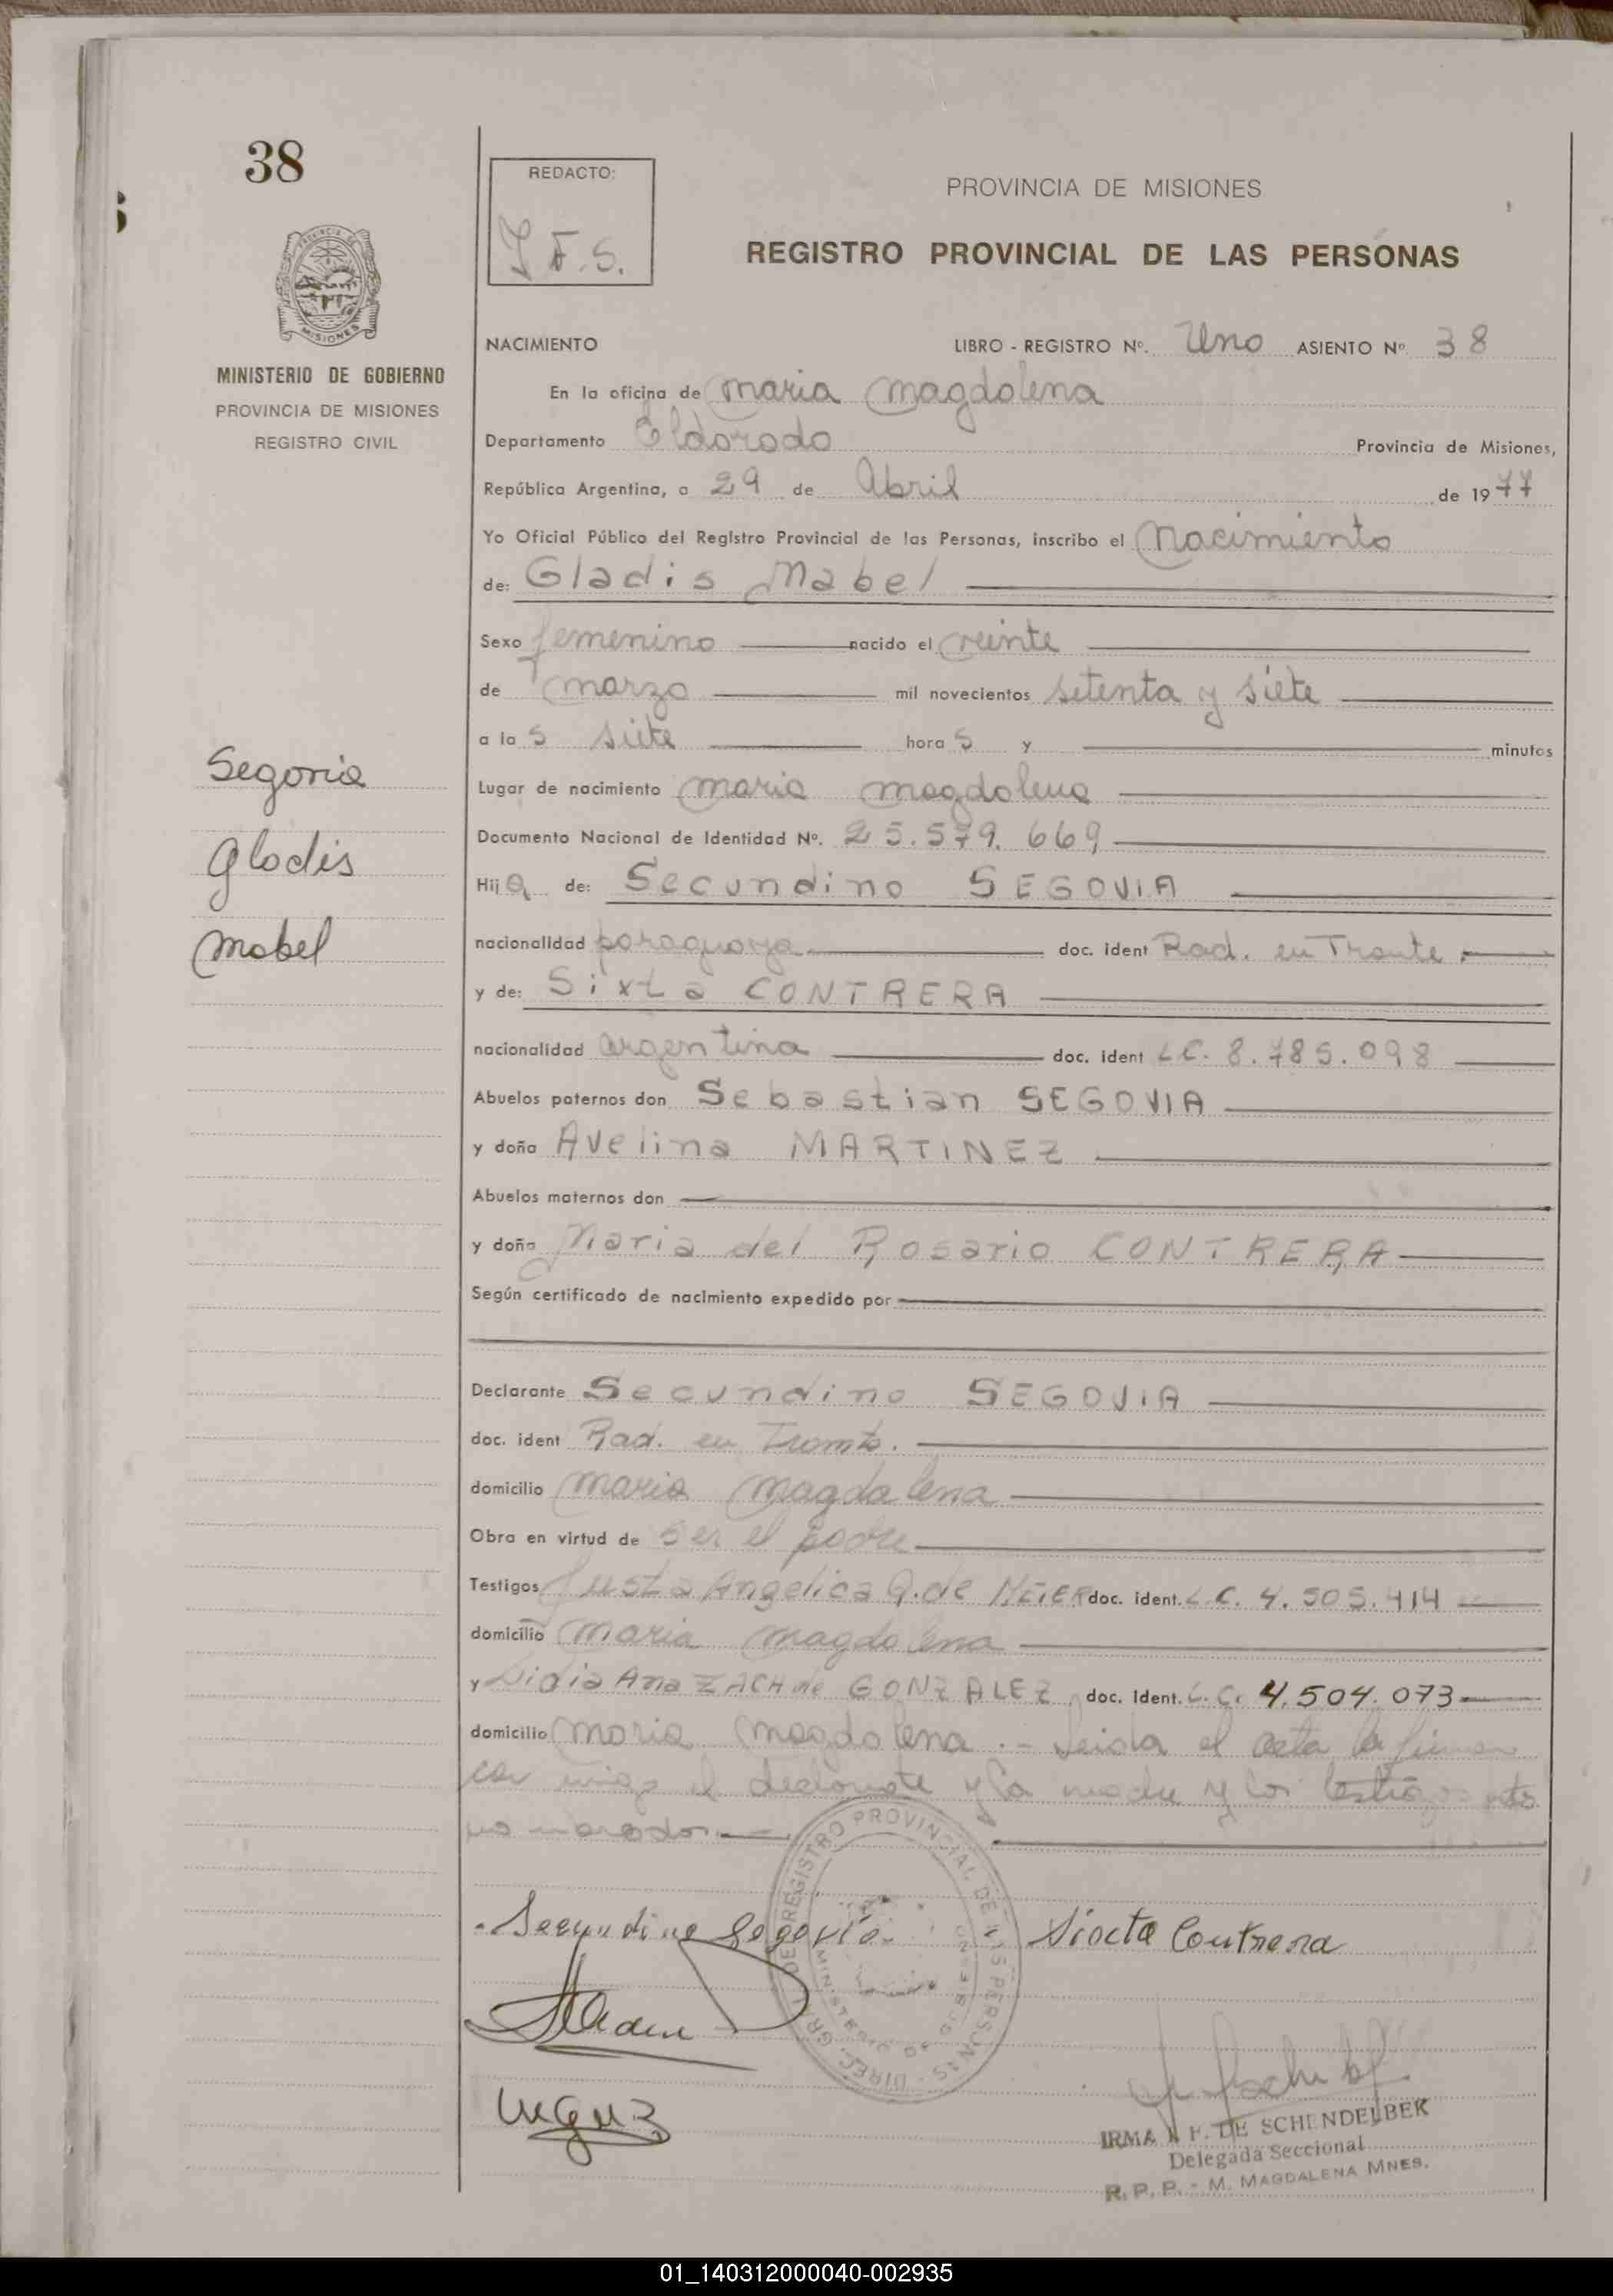 38
REDACTO:
J F. S.
PROVINCIA DE MISIONES
REGISTRO PROVINCIAL DE LAS PERSONAS
MISIONES
MINISTERIO DE GOBIERNO
PROVINCIA DE MISIONES
REGISTRO CIVIL
NACIMIENTO LIBRO - REGISTRO Nº. Uno ASIENTO Nº 38
En la oficina de maria magdalena
Departamento Eldorado Provincia de Misiones,
República Argentina, a 29 de Abril de 1977
Yo Oficial Público del Registro Provincial de las Personas, inscribo el Nacimiento
de: Gladis Mabel
Sexo femenino nacido el veinte
de marzo mil novecientos setenta y siete
a las siete horas y minutos
Lugar de nacimiento maria magdalena
Documento Nacional de Identidad Nº. 25.579.669
Hija de: Secundino SEGOVIA
nacionalidad paraguaya doc. ident Rad. en Tramite.
y de: Sixta CONTRERA
nacionalidad argentina doc. ident L.C. 8.785.098
Abuelos paternos don Sebastian SEGOVIA
y doña Avelina MARTINEZ
Abuelos maternos don
y doña Maria del Rosario CONTRERA
Según certificado de nacimiento expedido por
Declarante Secundino SEGOVIA
doc. ident Rad. en Tramite.
domicilio maria magdalena
Obra en virtud de ser el padre
Testigos Justa Angelica Q. de MEIER doc. ident. L.C. 4.505.414
domicilio maria magdalena
y Lidia Ana ZACH de GONZALEZ doc. Ident. L.C. 4.504.073
domicilio maria magdalena .- Leida el acta la firman
con migo el declarante y la madre y los testigos
Segovia
Gladis
Mabel
DIREC. GRAL. DE REGISTRO PROVINCIAL DE LAS PERSONAS
MINISTERIO DE GOBIERNO
Secundino Segovia
Siocta Contrera
IRMA F. DE SCHENDELBEK
Delegada Seccional
R. P. P. - M. MAGDALENA MNES.
01_140312000040-002935